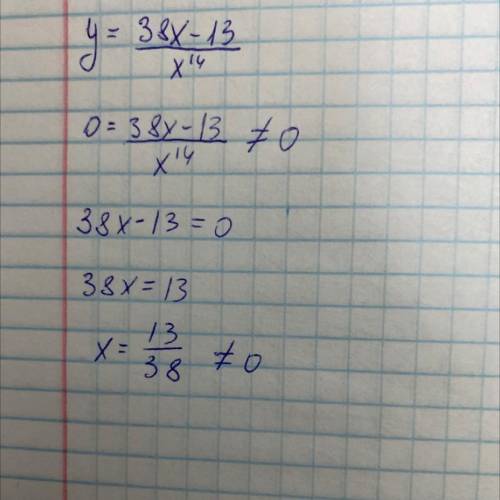 y = 38x-13 / x^14
0 = 38x-13 / x^14 ≠ 0
38x-13 = 0
38x = 13
x = 13/38 ≠ 0